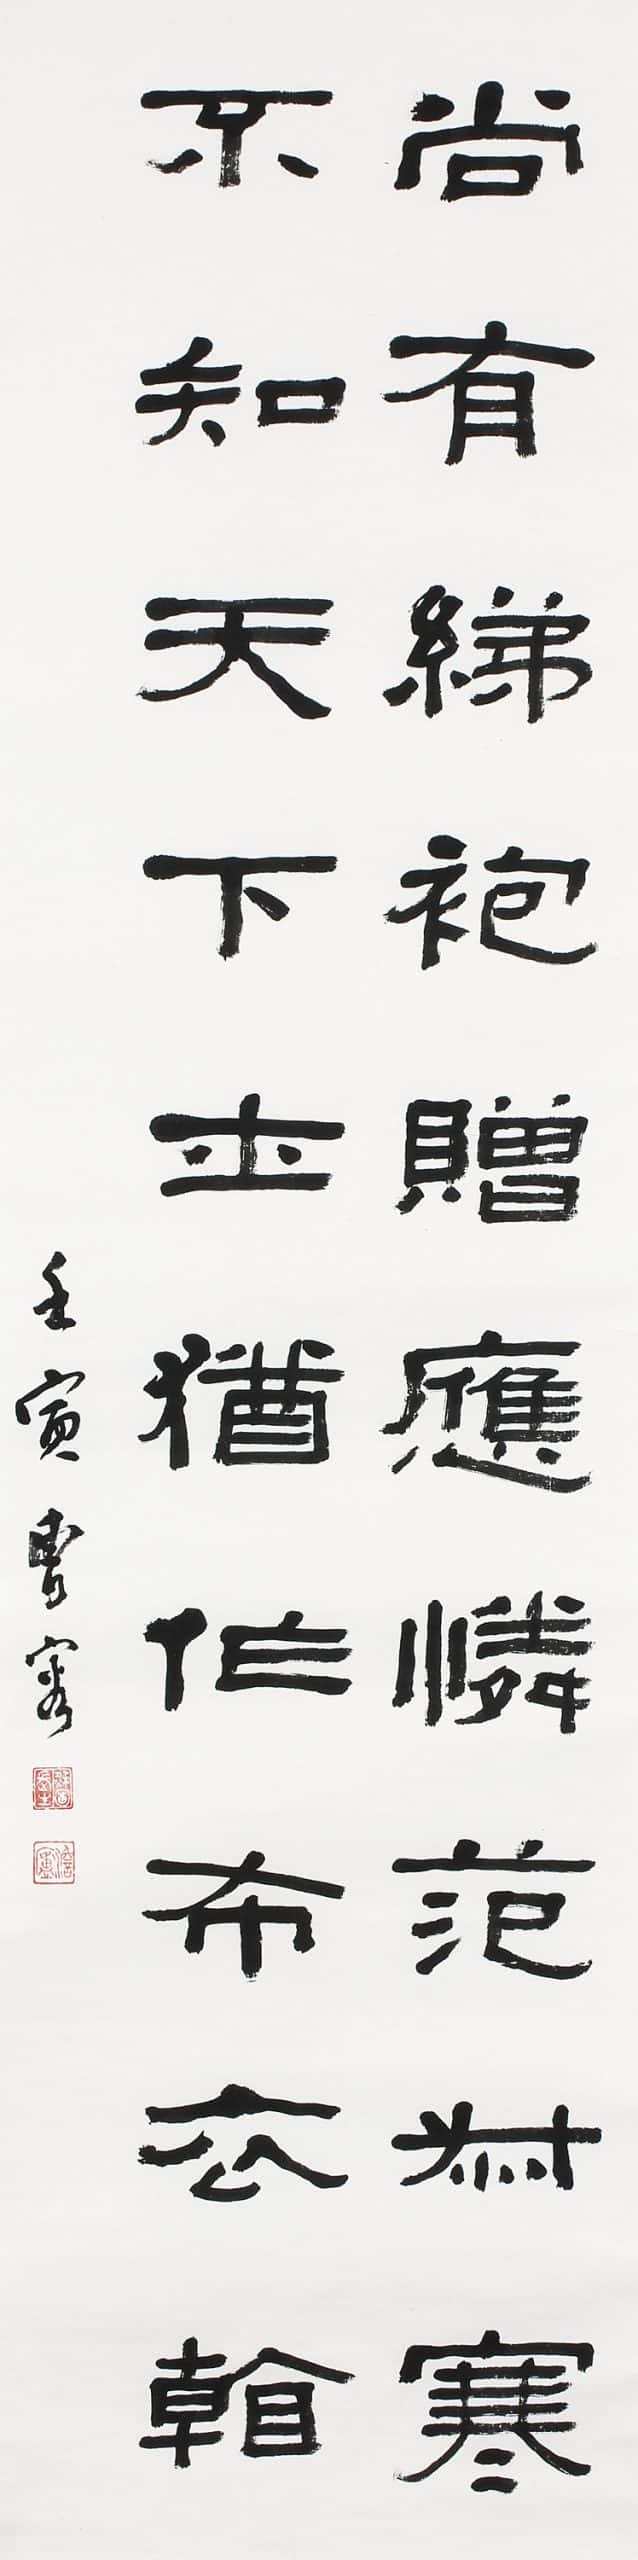 尚有綈袍贈應憐范叔寒
不知天下士猶作布衣看
壬寅曹容
澹廬